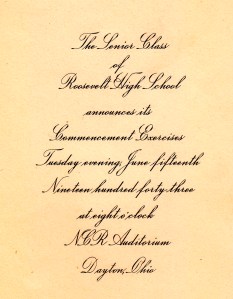 The Senior Class
of
Roosevelt High School
announces its
Commencement Exercises
Tuesday evening, June fifteenth
Nineteen hundred forty-three
at eight o'clock
NCR Auditorium
Dayton, Ohio